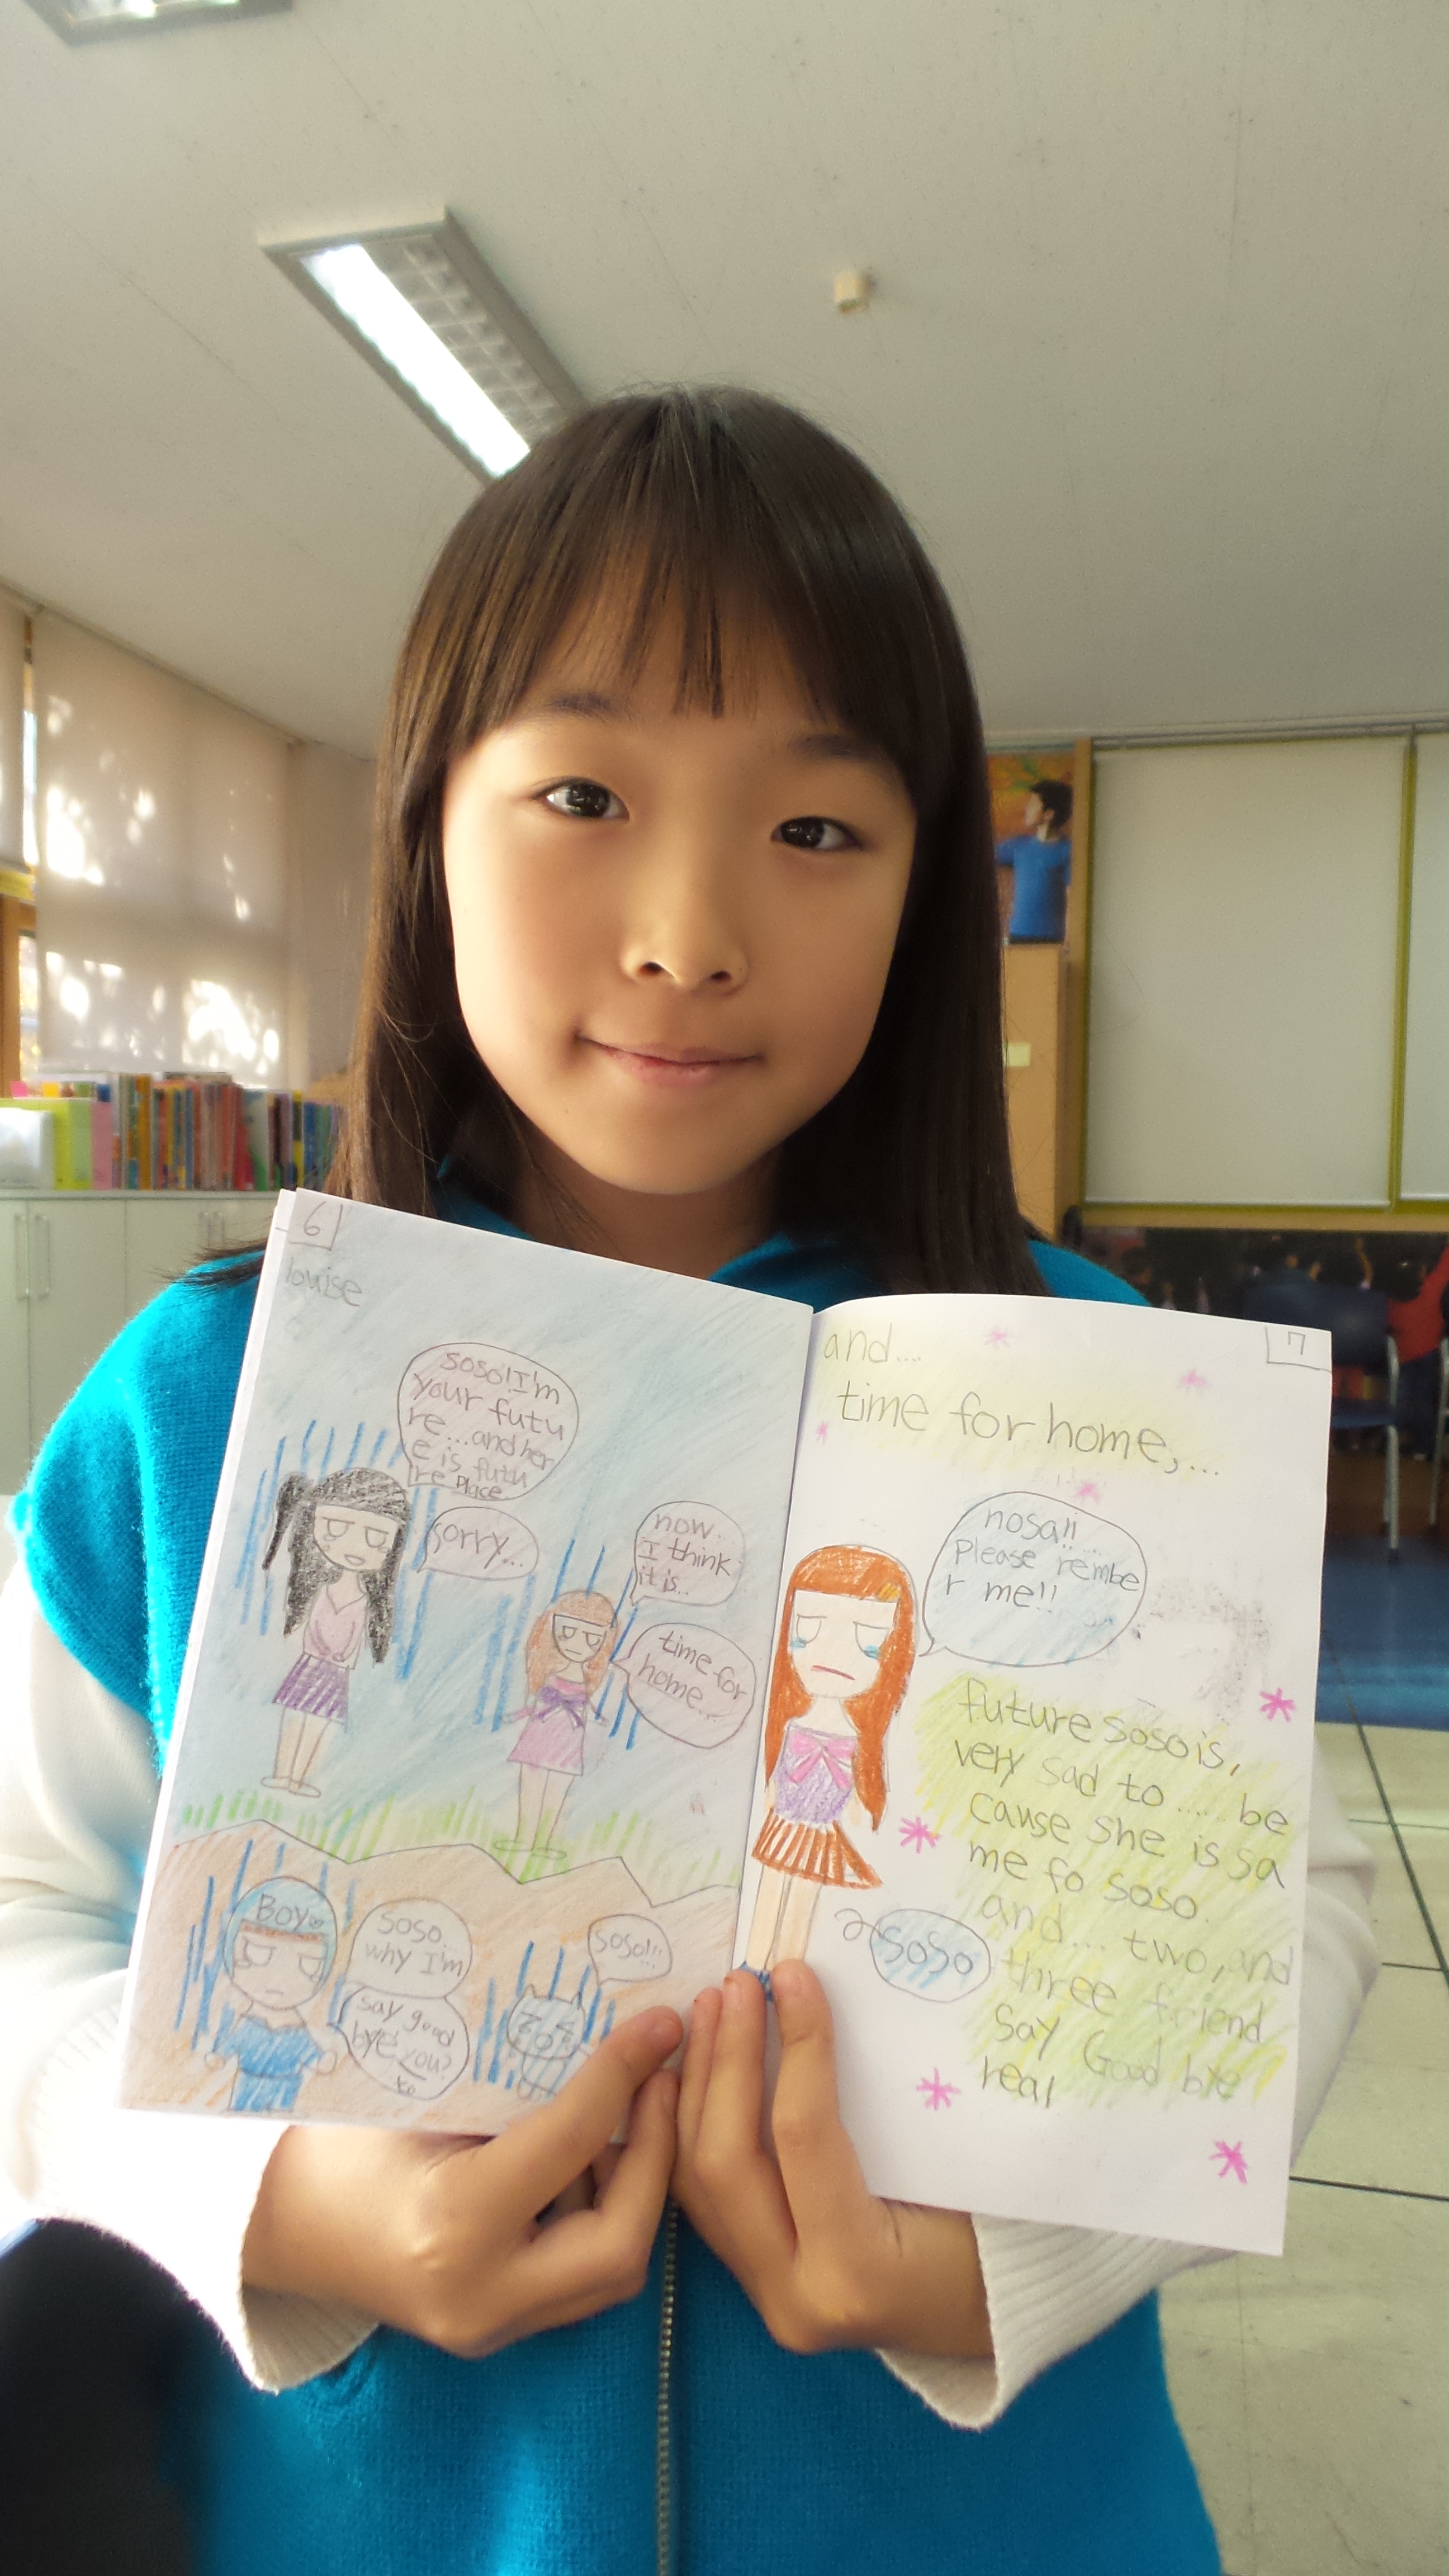 6
louise
soso! I'm
your futu
re...and her
e is futu
re Place
sorry...
now..
I think
it is...
time for
home....
Boy
soso...
why I'm
say good
bye you?
soso!!!
7
and....
time for home,...
nosa!!
Please rembe
r me!!
future soso is,
very sad to ..... be
cause she is sa
me fo soso.
and.... two, and
three friend
Say Good bye
real
soso